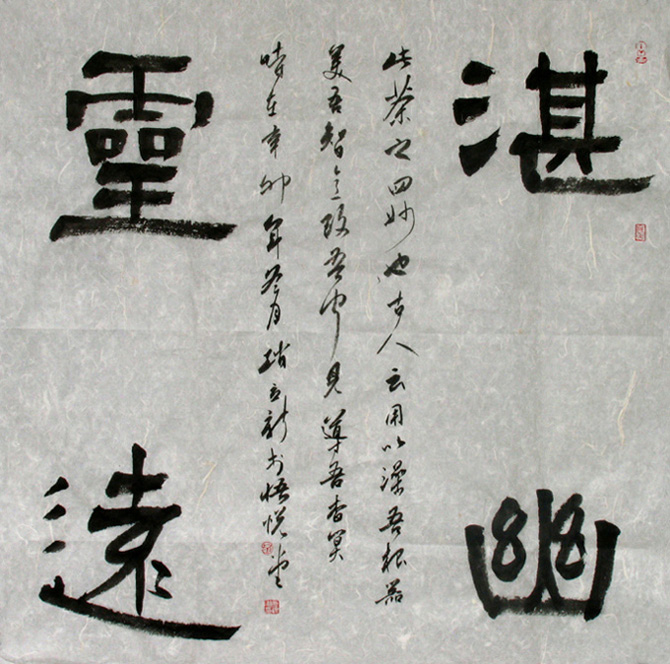 湛幽
靈遠
此茶之四妙也古人云用以澡吾根器
美吾智意改吾聞見導吾杳冥
時在辛卯年冬月趙立新於悟悅堂